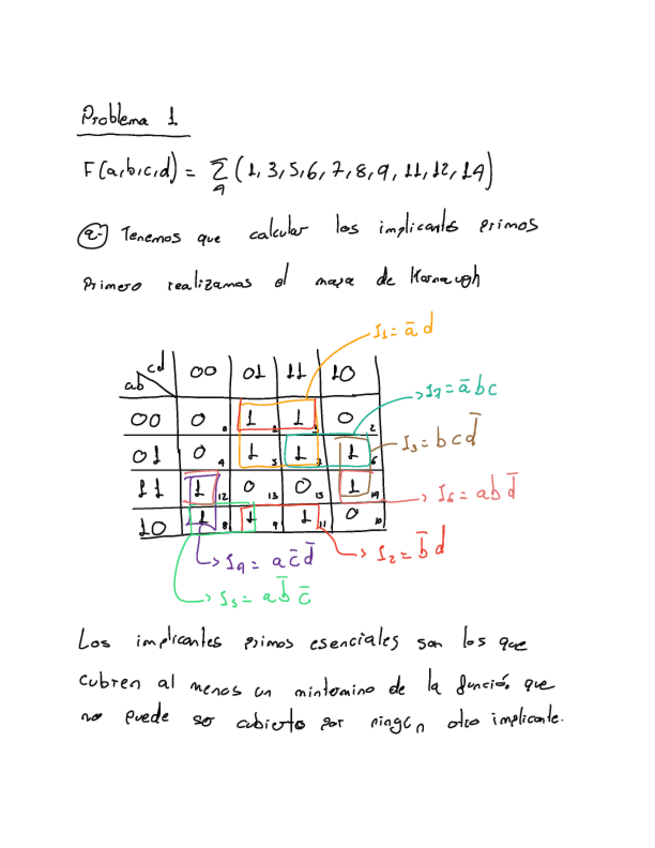 Problema 1
F(a,b,c,d) = Σ4 (1, 3, 5, 6, 7, 8, 9, 11, 12, 14)
a- Tenemos que calcular los implicantes primos
Primero realizamos el mapa de Karnaugh
I1 = a̅ d
cd 00 01 11 10
ab
I7 = a̅ b c
00 0 0 1 1 1 3 0 2
I3 = b c d̅
01 0 4 1 5 1 7 1 6
11 1 12 0 13 0 15 1 14
I6 = a b d̅
10 1 8 1 9 1 11 0 10
I4 = a c̅ d̅
I2 = b̅ d
I5 = a b̅ c̅
Los implicantes primos esenciales son los que
cubren al menos un mintermino de la función, que
no puede ser cubierto por ningun otro implicante.